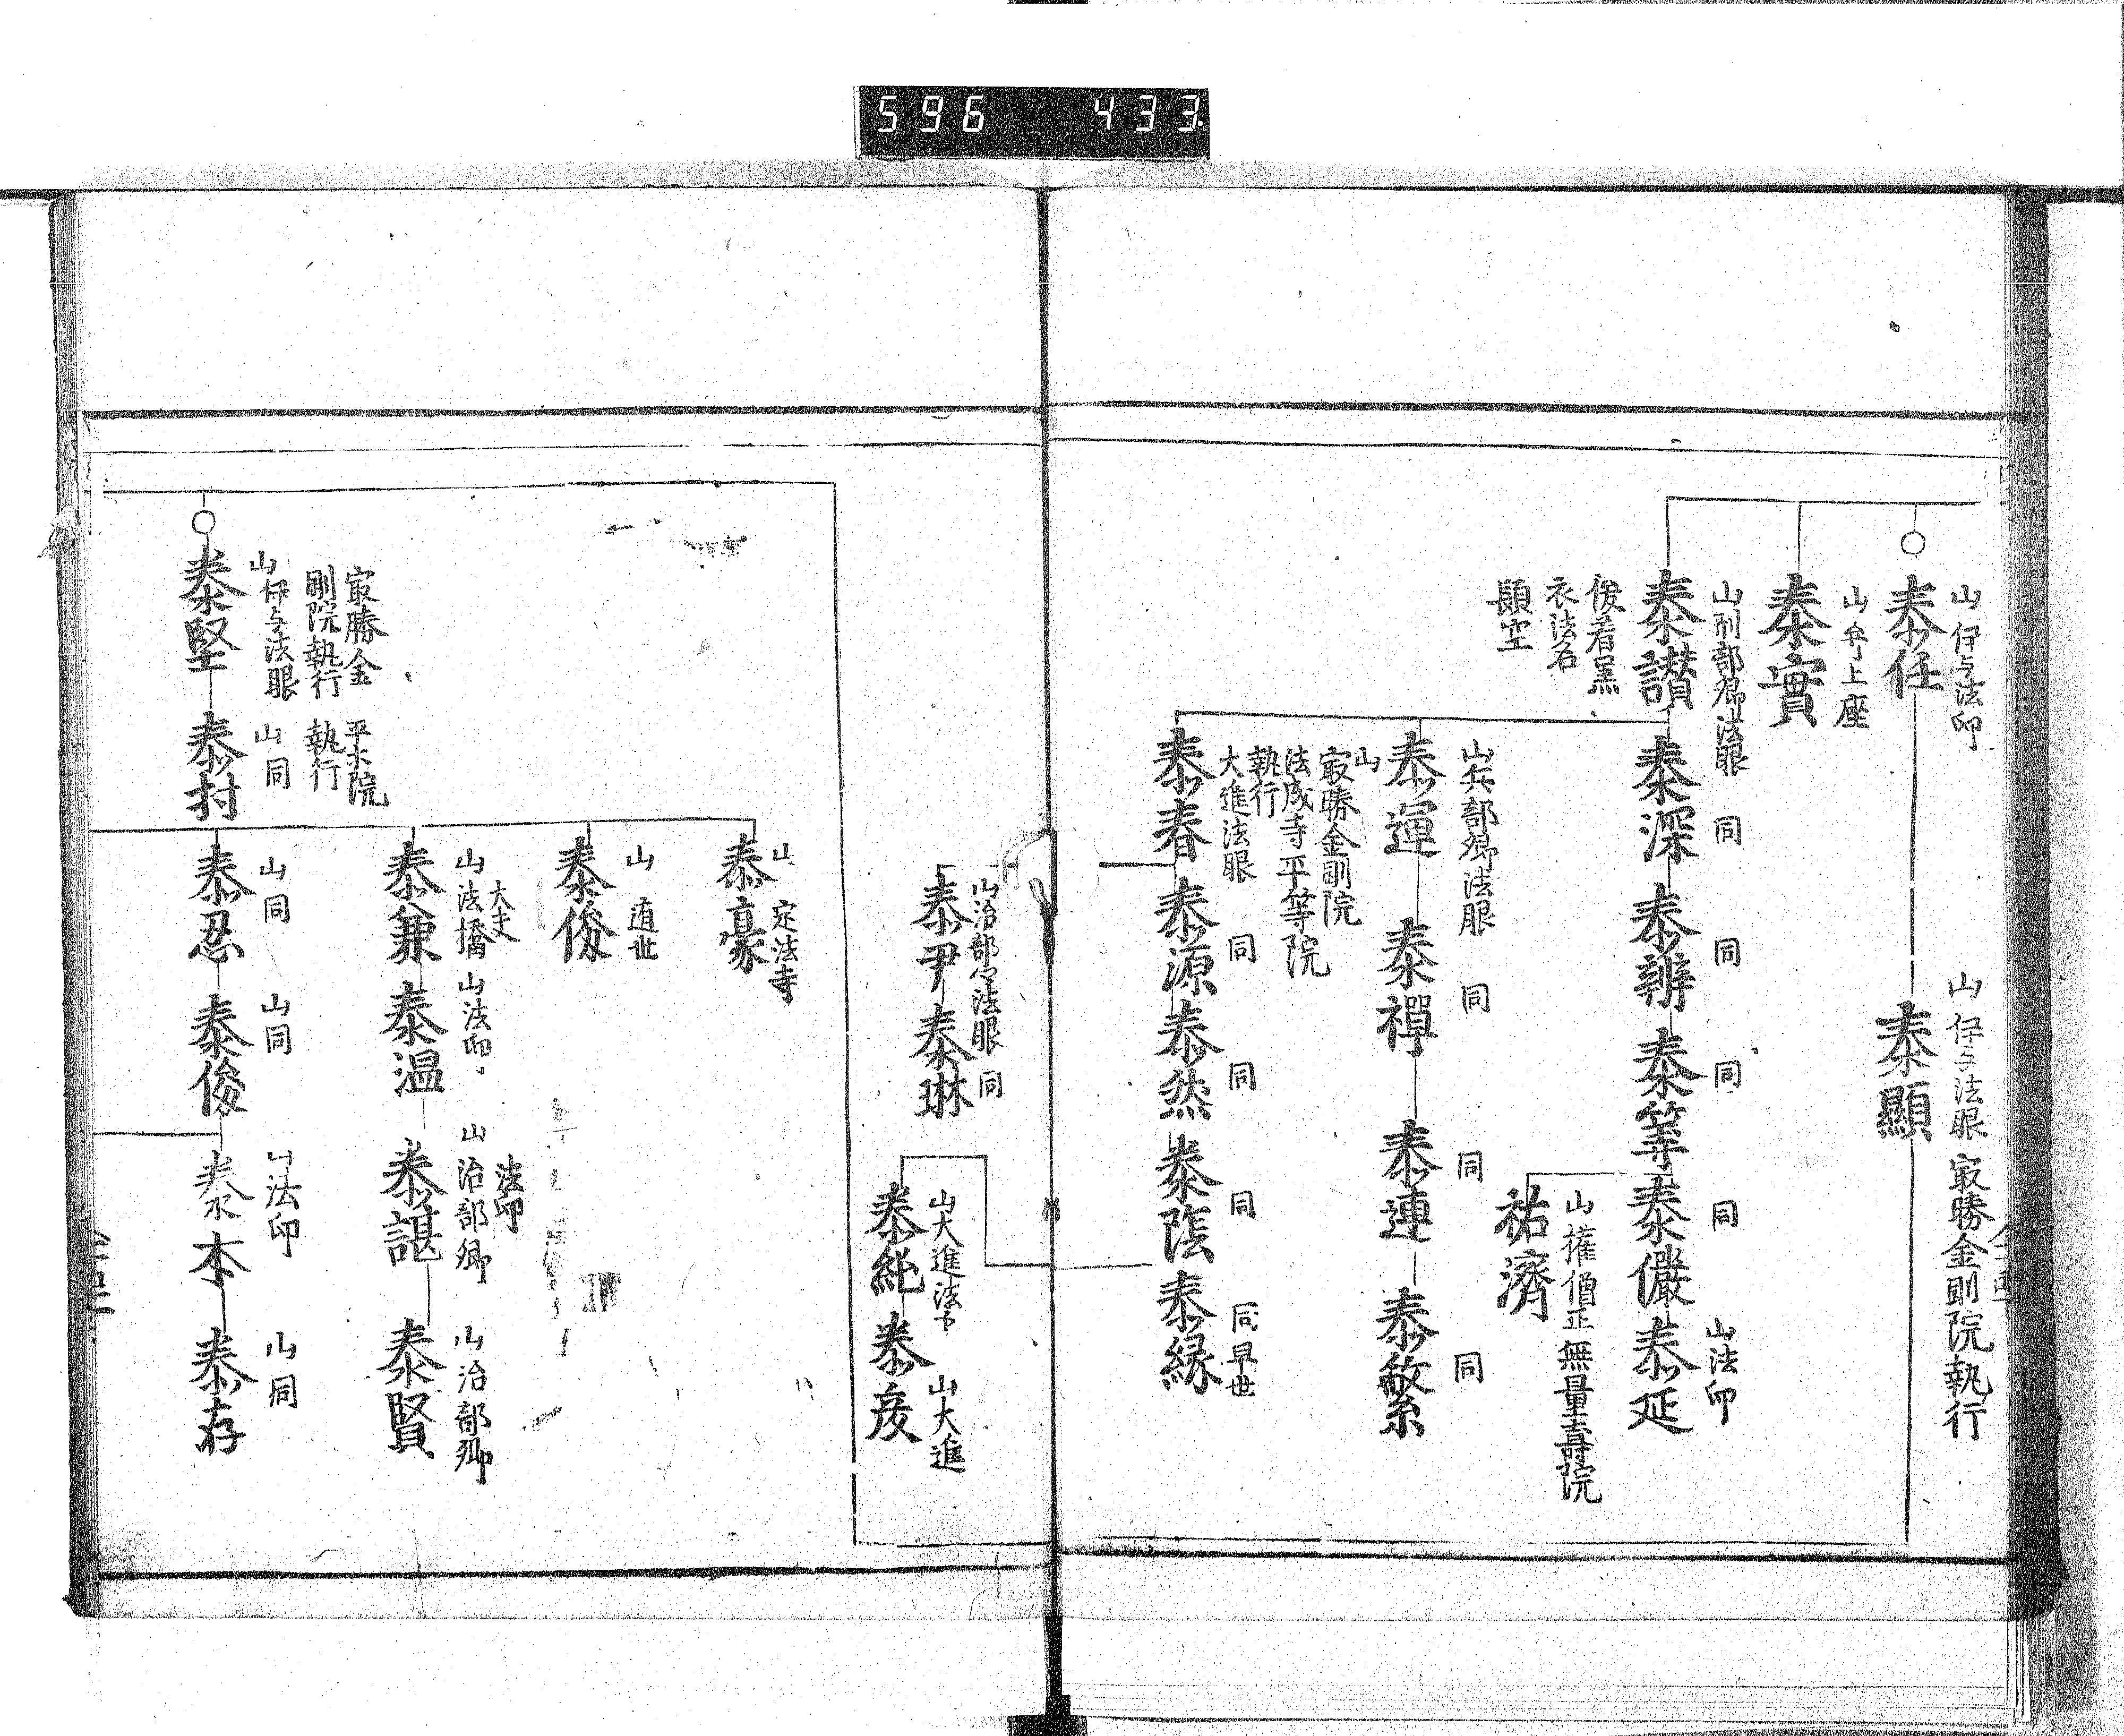 596 433
山伊与法印
泰任
山伊与法眼 冣勝金剛院執行
泰顯
山弁上座
泰實
山刑部卿法眼
泰讃
後着黒
衣法名
顕空
同 同 同 同 山法印
泰深 泰辨 泰等 泰儼 泰延
山権僧正無量壽院
祐濟
山兵部卿法眼 同 同 同
泰運 泰禪 泰連 泰繁
山
冣勝金剛院
法成寺平等院
執行
大進法眼 同 同 同 同早世
泰春 泰源 泰然 泰蔭 泰縁
山治部卿法眼 同
泰尹 泰琳
山大進法下 山大進
泰純 泰彦
山 定法寺
泰豪
山 遁世
泰俊
山法橋 大夫 山法印 山治部卿 法印 山治部卿
泰兼 泰温 泰諶 泰賢
冣勝金
剛院執行
山伊与法眼
泰堅
平木院
執行
山同
泰村
山同 山同 山法印 山同
泰忍 泰俊 泰本 泰存